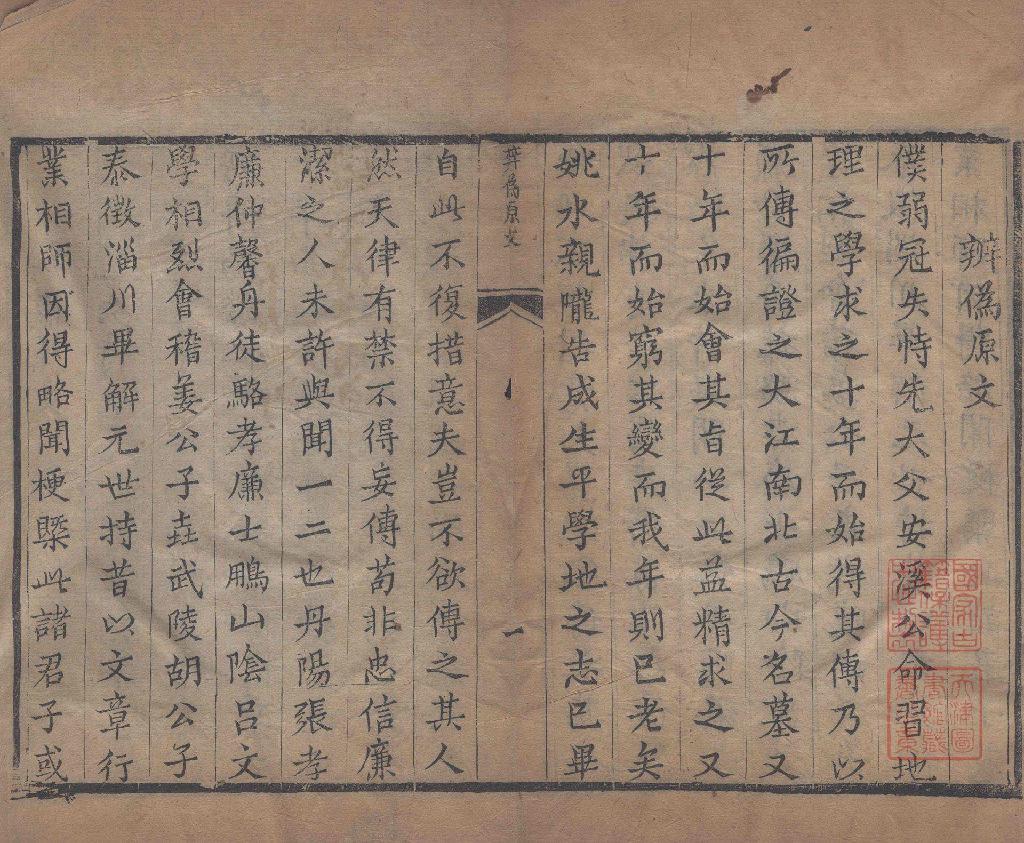 辨偽原文
僕弱冠失恃先大父安溪公命習地
理之學求之十年而始得其傳乃以
所傳徧證之大江南北古今名墓又
十年而始會其旨從此益精求之又
十年而始窮其變而我年則已老矣
姚水親隴告成生平學地之志已畢
辨偽原文
一
自此不復措意夫豈不欲傳之其人
然天律有禁不得妄傳苟非忠信廉
潔之人未許與聞一二也丹陽張孝
廉仲馨丹徒駱孝廉士鵬山陰呂文
學相烈會稽姜公子垚武陵胡公子
泰徵淄川畢解元世持昔以文章行
業相師因得略聞梗槩此諸君子或